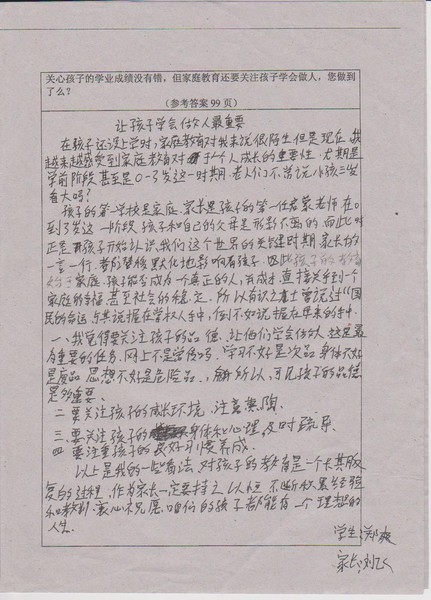 关心孩子的学业成绩没有错，但家庭教育还要关注孩子学会做人，您做到
了么？
（参考答案 99 页）
让孩子学会做人最重要
在孩子还没上学时，家庭教育对我来说很陌生但是现在，我
越来越感受到家庭教育对于个人成长的重要性。尤期是
学前阶段甚至是0-3岁这一时期。老人们不常说小孩三岁
看大吗？
孩子的第一学校是家庭，家长是孩子的第一任启蒙老师在0
到3岁这一阶段 孩子和自己的父母是形影不离的，而此时
正是孩子开始认识我们这个世界的关键时期 家长的
一言一行，都能潜移默化地影响着孩子。因此孩子的
始于家庭。孩子能否成为一个真正的人，有成才，直接关乎到一个
家庭的幸福 甚至社会的稳定。所以有识之士曾说过“国
民的命运与其说握在掌权人手中，倒不如说握在母亲的手中。
一、我觉得要关注孩子的品德，让他们学会做人 这是最
为重要的任务，网上不是常传吗，学习不好是次品 身体不好
是废品 思想不好是危险品，所以，可见孩子的品德
是多重要。
二 要关注孩子的成长环境，注意熏陶。
三、要关注孩子的身体和心理及时疏导。
四 要注重孩子的良好习惯养成。
以上是我的一些看法，对孩子的教育是一个长期反
复的过程，作为家长一定要持之以恒 不断收累经验
和教训，衷心祝愿，咱们的孩子都能有一个理想的
人生。
学生：
家长：刘飞